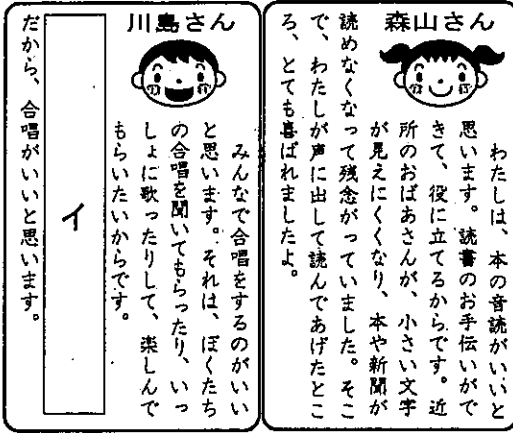 森山さん
わたしは、本の音読がいいと
思います。読書のお手伝いがで
きて、役に立てるからです。近
所のおばあさんが、小さい文字
が見えにくくなり、本や新聞が
読めなくなって残念がっていました。そこ
で、わたしが声に出して読んであげたとこ
ろ、とても喜ばれましたよ。
川島さん
みんなで合唱をするのがいい
と思います。それは、ぼくたち
の合唱を聞いてもらったり、いっ
しょに歌ったりして、楽しんで
もらいたいからです。
イ
だから、合唱がいいと思います。